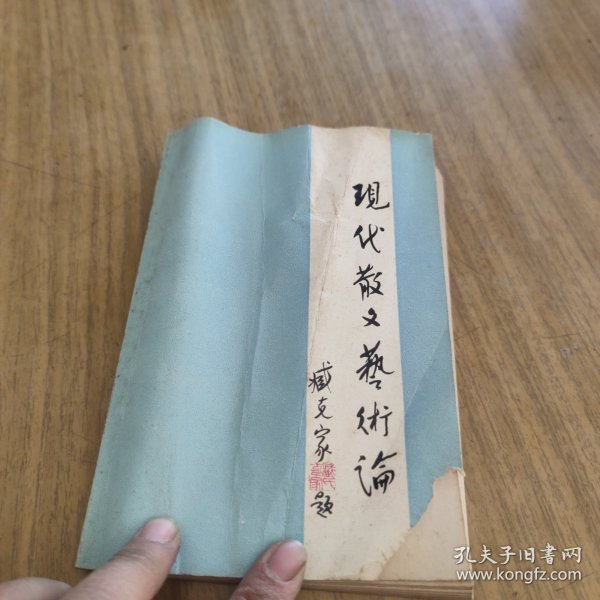 現代散文藝術論
臧克家題
孔夫子旧書网
www.kongfz.com